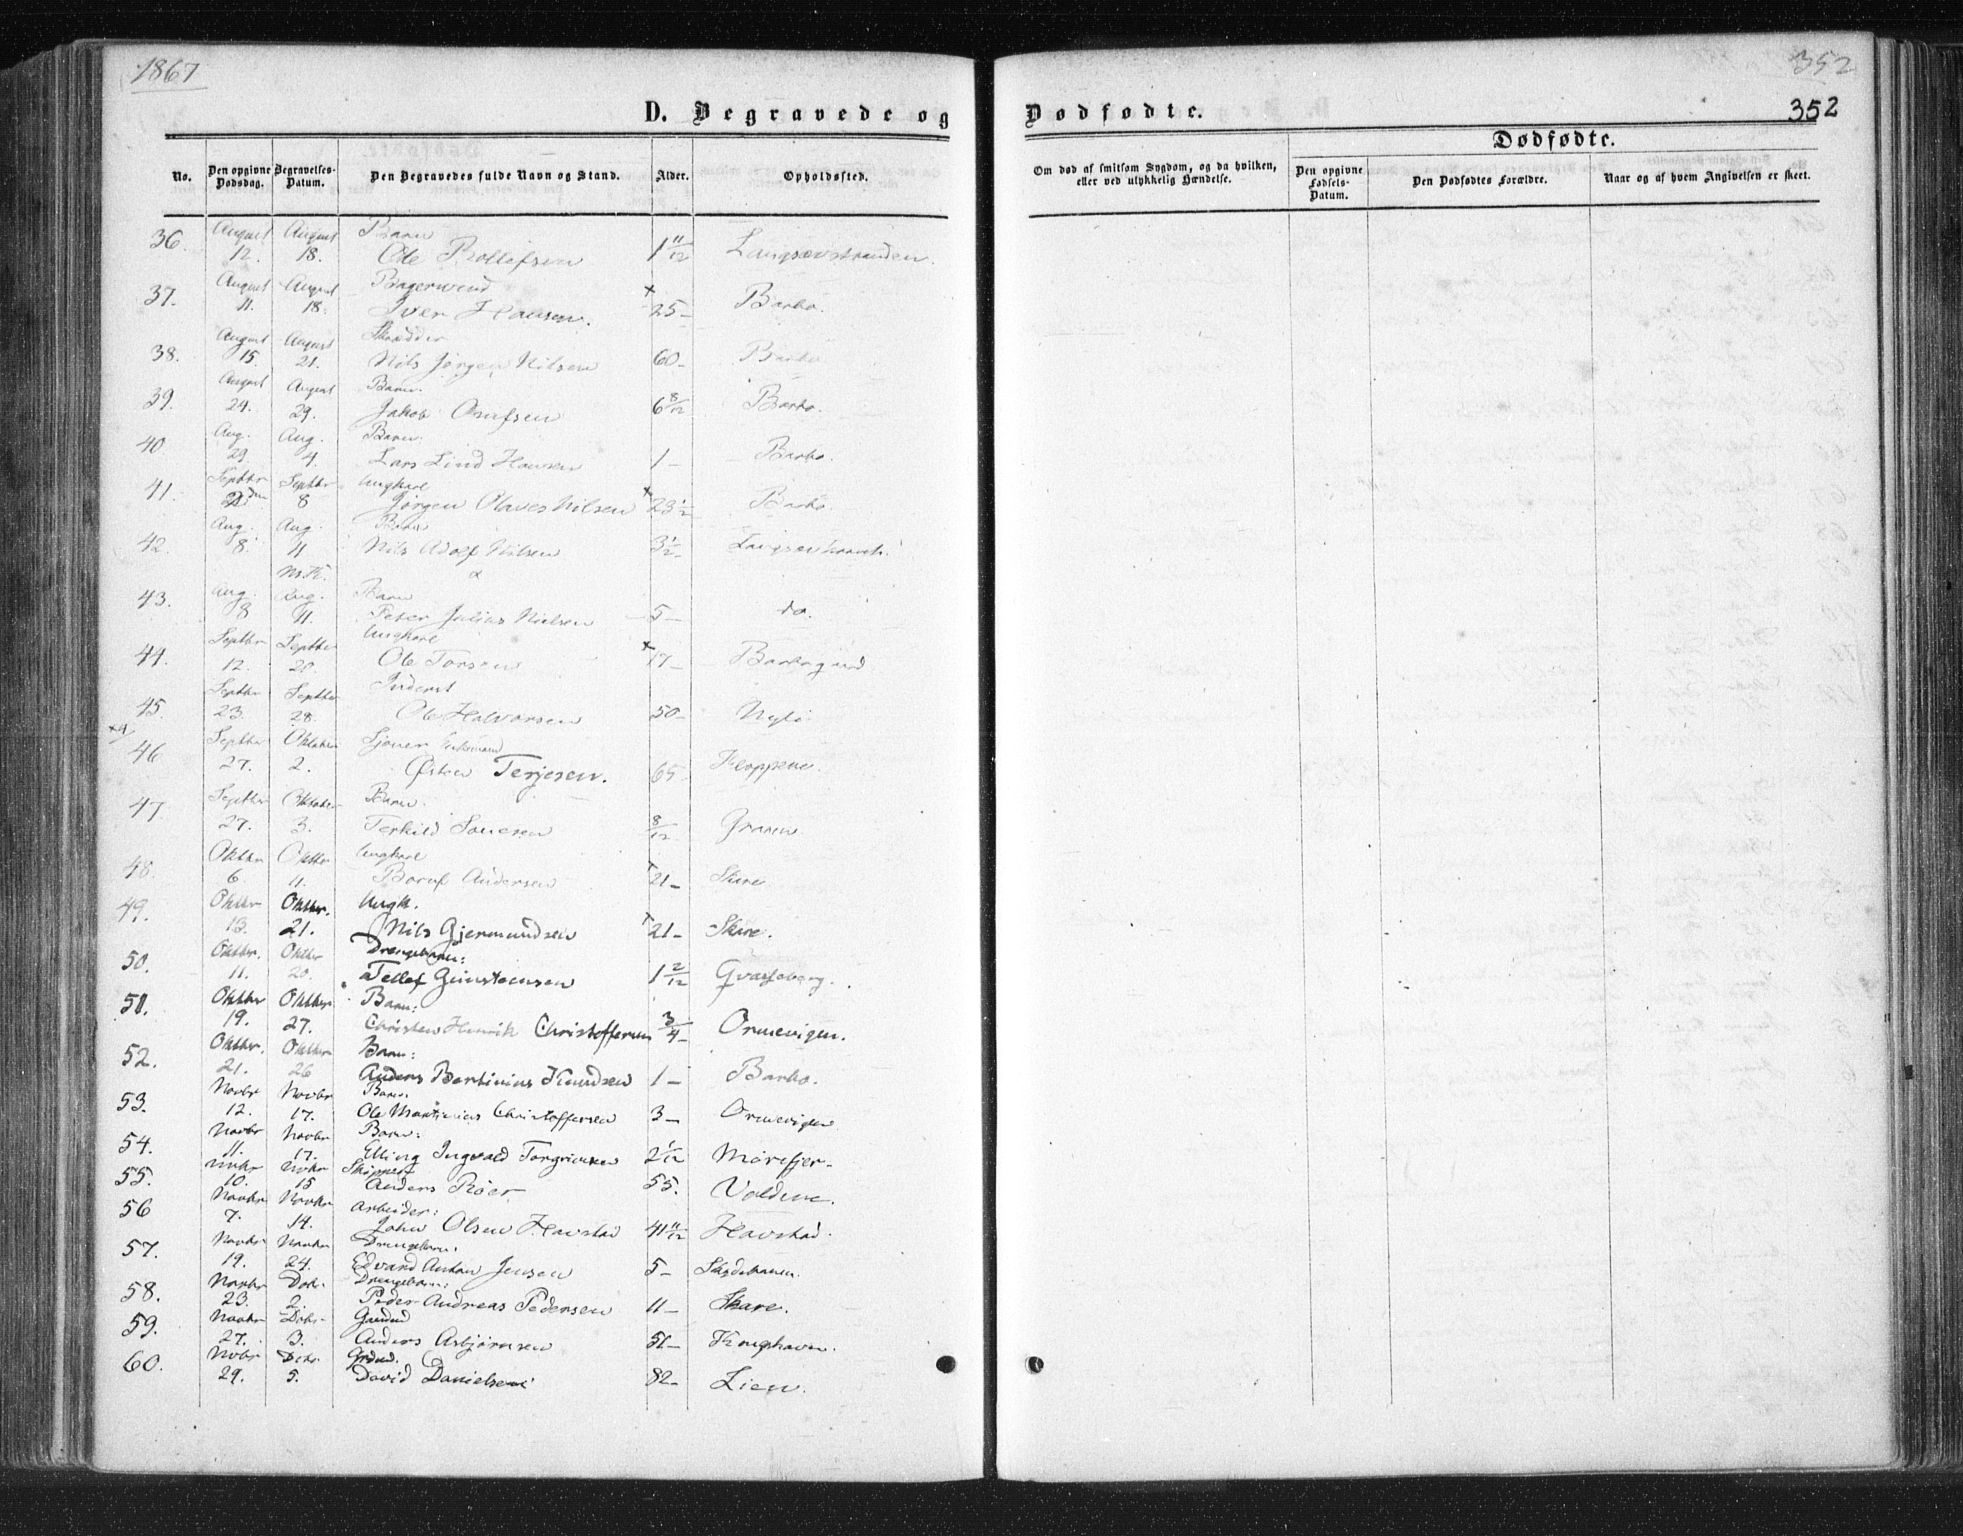 1867
352
D. Begravede og
Dødfødte.
352
No.
Den opgivne Dødsdag.
Begravelses-Datum.
Den Begravedes fulde Navn og Stand.
Alder.
Opholdssted.
Om død af smitsom Sygdom, og da hvilken, eller ved ulykkelig Hændelse.
Dødfødte.
Den opgivne Fødsels-Datum.
Den Dødfødtes Forældre.
Naar og af hvem Angivelsen er skeet.
36. August August Barn
12. 18. Ole 1 11/12
37. August August
11. 18. Iver Hansen. + 25- Barbo.
38. August August Skrædder
15. 21. Nils Jørgen Nilsen 60- Barbo
39. August August Barn.
24. 29. Jakob 6 8/12 Barbo.
40. Aug. Aug. Barn.
29. 4. Lars Lind Hansen 1- Barbo.
41. Septbr Septbr Ungkarl
2 8 Jørgen Olaves Nilsen + 23 1/2 Barbo.
42. Aug. Aug. Barn
8. 11 Nils Adolf Nilsen 3 1/2
43. Aug. Aug. Barn
8 11. Peter Julius Nielsen 5- do.
44. Septbr Septbr Ungkarl
12. 20. Ole + 17-
45. Septbr Septbr Inderst
23. 28. Ole Halvorsen 50-
46 Septbr Oktober
27. 2. Østen Terjesen. 65- Kloppene.
47 Septbr Oktober Barn.
27. 3. Terkild 8/12
48. Oktbr Oktbr Ungkarl
6. 11. Andersen + 21- Skare.
49. Oktbr Oktbr. Ungk.
13. 21. Nils Gjermundsen + 21- Skare.
50. Oktbr. Oktbr Drengebarn:
11. 20. Tellef Gunstensen 1 2/12
51. Oktbr Oktbr Barn:
19. 27. Christen Henrik Christoffersen 3/4- Ormevigen.
52. Oktbr. Oktbr Barn:
21. 26 Anders Bertinius Knudsen 1- Barbo.
53. Novbr Novbr Barn:
12. 17. Ole Martinius Christoffersen 3- Ormevigen
54. Novbr Novbr Barn:
11. 17. Elling Ingvald 2 1/12 Mørefjer-
55. Novbr Novbr Skipper
10. 15 Anders Røer 55. Voldene.
56 Novbr Novbr Arbeider:
7. 14. John Olsen Havstad 41 11/12 Havstad.
57. Novbr Novbr Drengebarn:
19. 24. Edvard Anton Jensen 5-
58. Novbr Decbr Drengebarn:
23. 2. Peder Andreas Pedersen 11- Skare.
59. Novbr Decbr
27. 3. Anders Asbjørnsen Krøghaven.
60. Novbr Decbr
29. 5. David Danielsen 82- Lien.